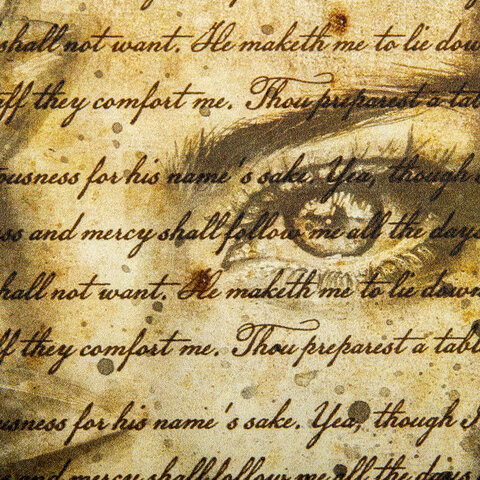 shall not want. He maketh me to lie dow
aff they comfort me. Thou preparest a tabl
ousness for his name's sake. Yea, though
ss and mercy shall follow me all the days
hall not want. He maketh me to lie down
ff they comfort me. Thou preparest a tabl
usness for his name's sake. Yea, though I
s and mercy shall follow me all the days